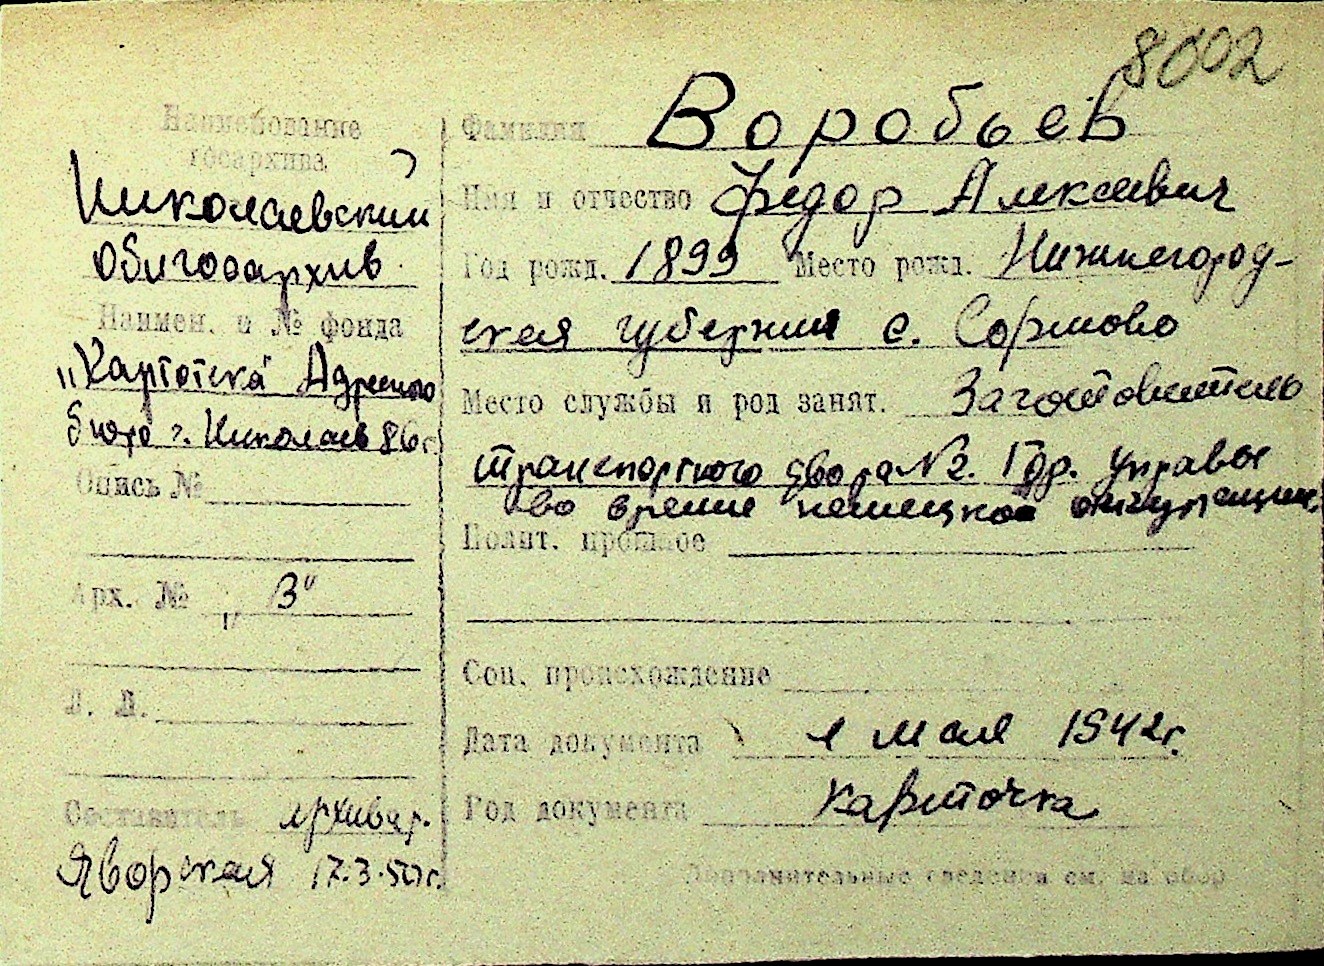 8002
Наименование
госархива
Николаевский
Облгосархив
Наимен. и № фонда
"Картотека Адресного
бюро г. Николаев 86г.
Опись №
Арх. № "В"
Л. Л.
Составитель архивар.
Яворская 17.3.50г.
Фамилия Воробьев
Имя и отчество Федор Алексеевич
Год рожд. 1899 Место рожд. Нижнегород-
ская губернии с. Сормово
Место службы и род занят. Заготовитель
транспортного двора №2. Гор. управы
во время немецкой оккупации
Полит. прошлое
Соц. происхождение
Дата документа 1 мая 1942г.
Год документа карточка
Дополнительные сведения см. на обор